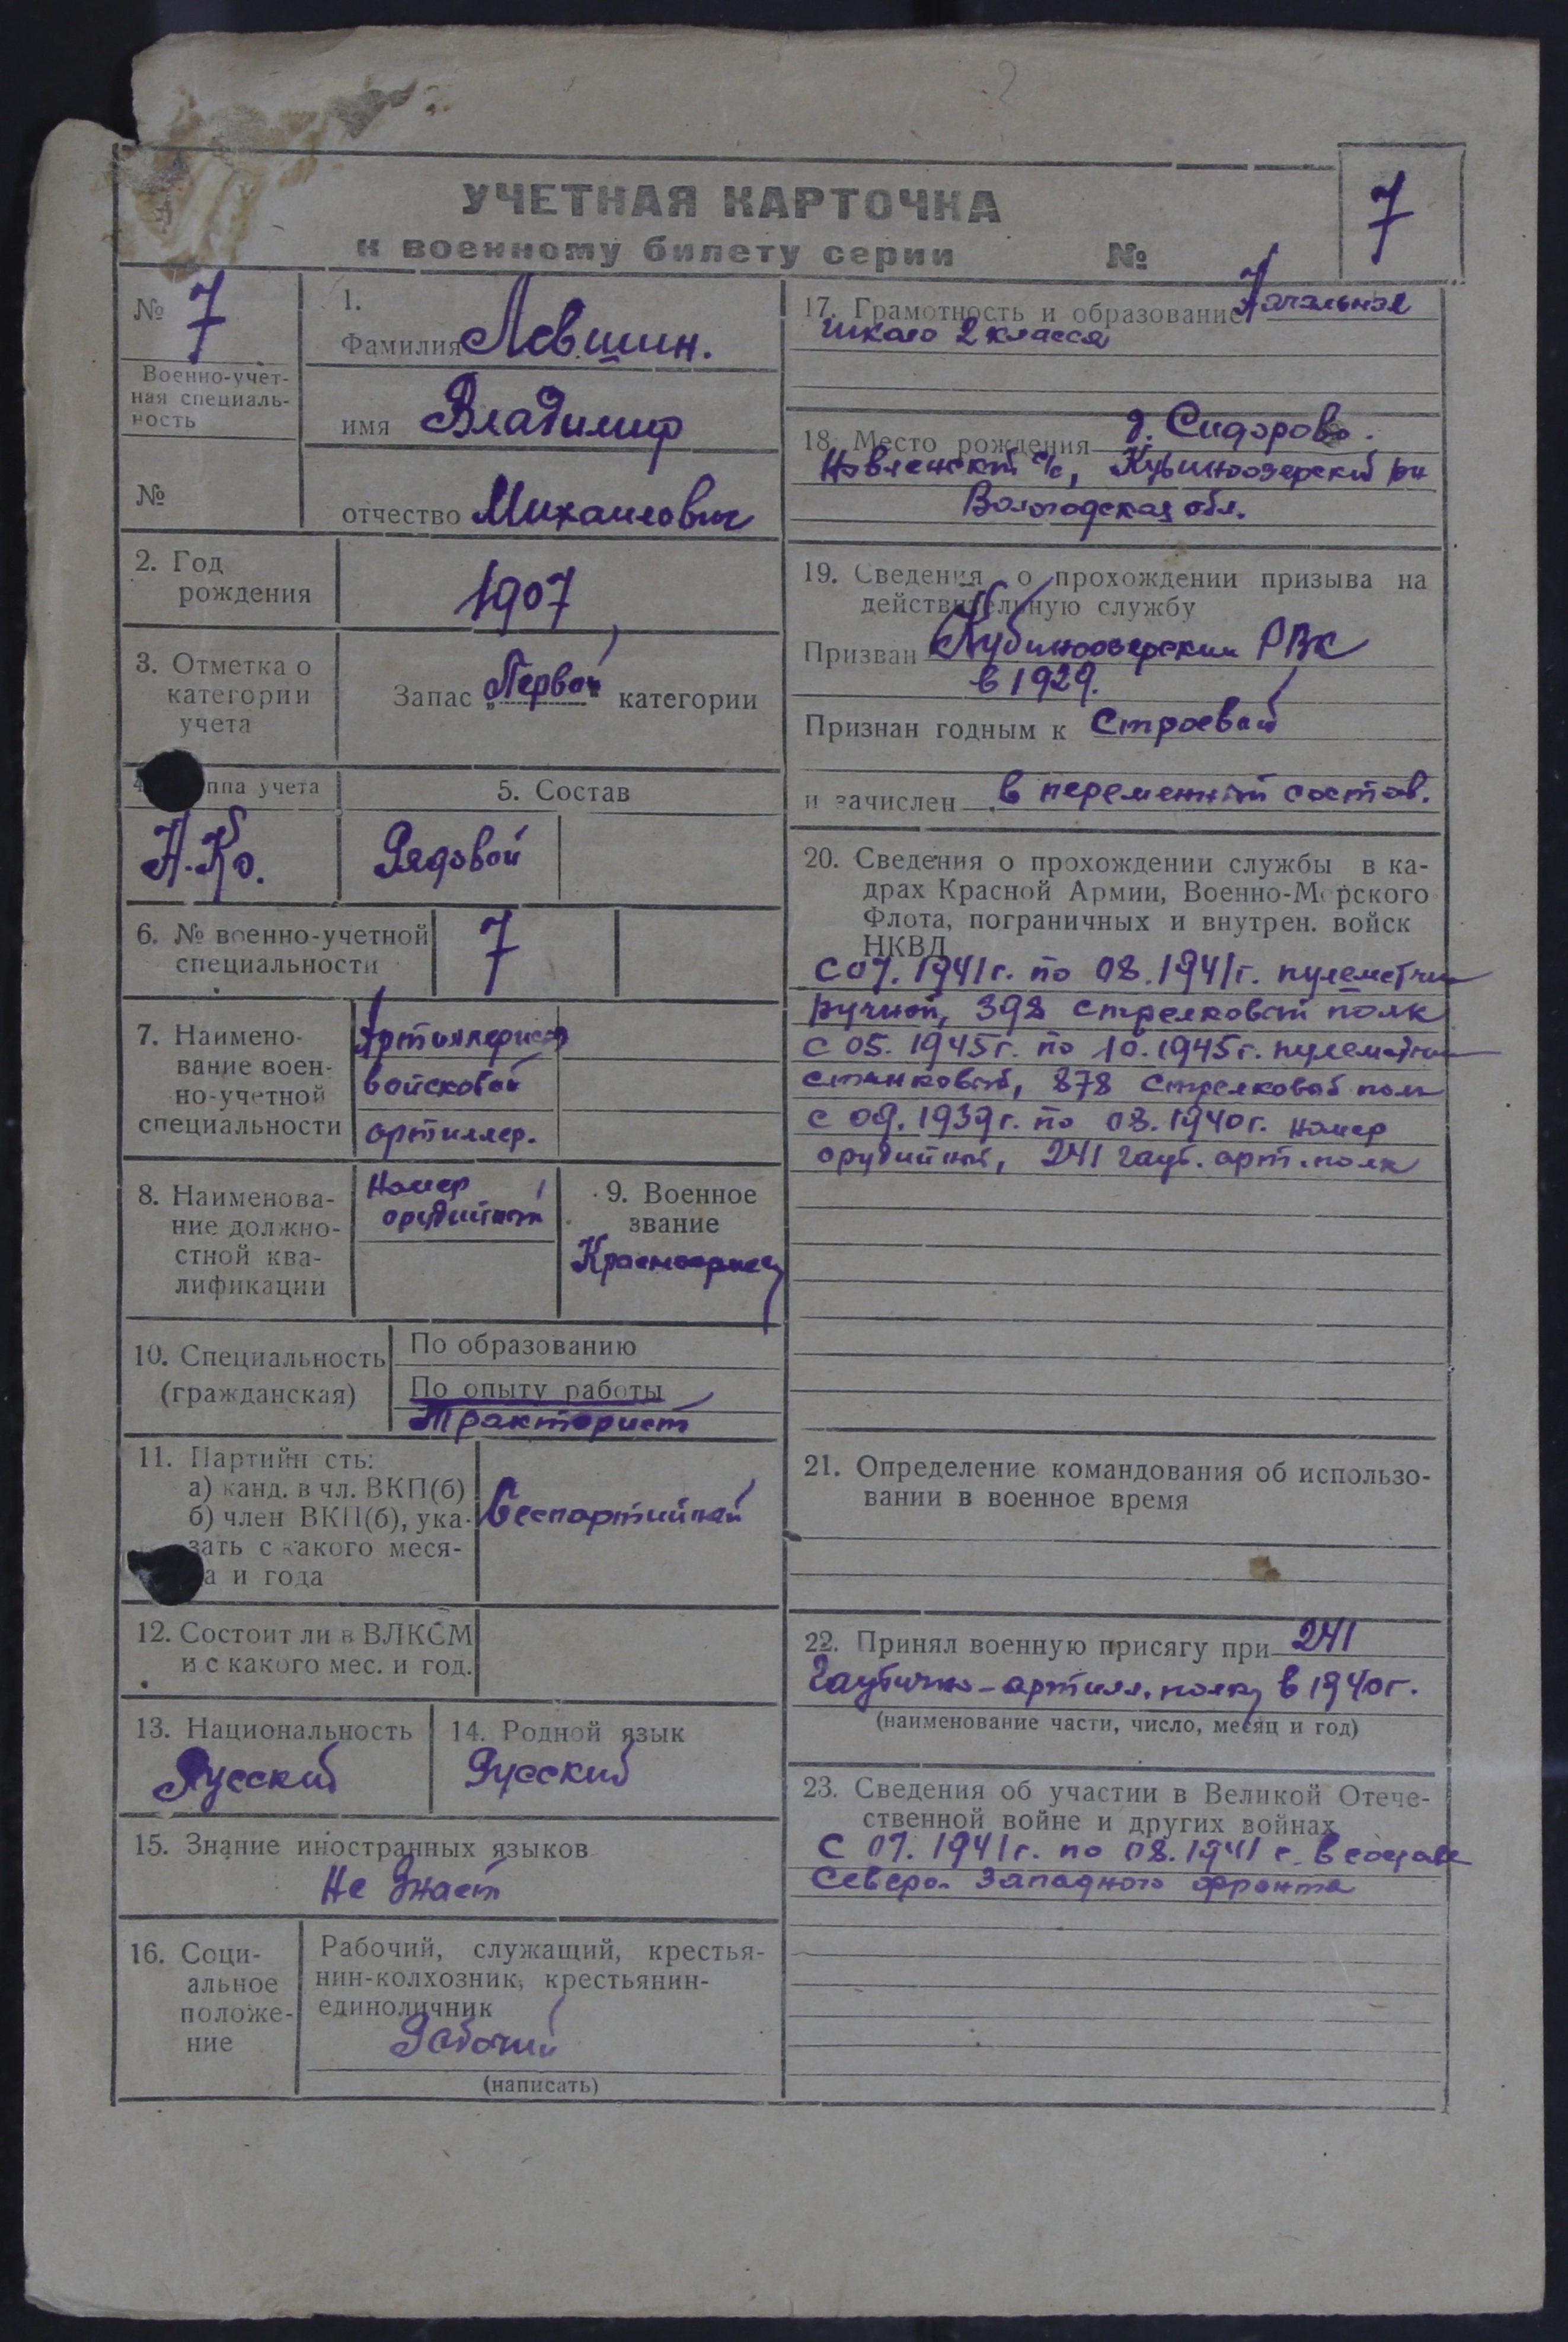 УЧЕТНАЯ КАРТОЧКА
к военному билету серии №
7
№ 7
Военно-учет-
ная специаль-
ность
№
1.
Фамилия Левшин.
имя Владимир
отчество Михайлович
2. Год
рождения
1907
3. Отметка о
категории
учета
Запас „Первой" категории
ппа учета
Н.Ко.
5. Состав
Рядовой
6. № военно-учетной
специальности
7
7. Наимено-
вание воен-
но-учетной
специальности
Артиллерист
войсковой
артиллер.
8. Наименова-
ние должно-
стной ква-
лификации
Номер
орудийный
9. Военное
звание
Красноармеец
10. Специальность
(гражданская)
По образованию
По опыту работы
Тракторист
11. Партийн сть:
а) канд. в чл. ВКП(б)
б) член ВКП(б), ука-
зать с какого меся-
а и года
Беспартийный
12. Состоит ли в ВЛКСМ
и с какого мес. и год.
13. Национальность
Русский
14. Родной язык
Русский
15. Знание иностранных языков
Не знает
16. Соци-
альное
положе-
ние
Рабочий, служащий, крестья-
нин-колхозник, крестьянин-
единоличник
Рабочий
(написать)
17. Грамотность и образование Начальная
школа 2 класса
18. Место рождения д. Сидорово.
Новленский с/с, Кубиноозерский рн
Вологодская обл.
19. Сведения о прохождении призыва на
действительную службу
Призван Кубиноозерским РВК
в 1929.
Признан годным к Строевой
и зачислен в переменный состав.
20. Сведения о прохождении службы в ка-
драх Красной Армии, Военно-Морского
Флота, пограничных и внутрен. войск
НКВД
С 07. 1941г. по 08. 1941г. пулеметчик
ручной, 398 стрелковый полк
С 05. 1945г. по 10. 1945г. пулеметчик
станковый, 878 стрелковый полк
с 09. 1939г. по 03. 1940г. номер
орудийный, 241 гауб. арт. полк
21. Определение командования об использо-
вании в военное время
22. Принял военную присягу при 241
Гаубично-артилл. полку в 1940г.
(наименование части, число, месяц и год)
23. Сведения об участии в Великой Отече-
ственной войне и других войнах
С 07. 1941г. по 08. 1941 г. в составе
Северо-Западного фронта